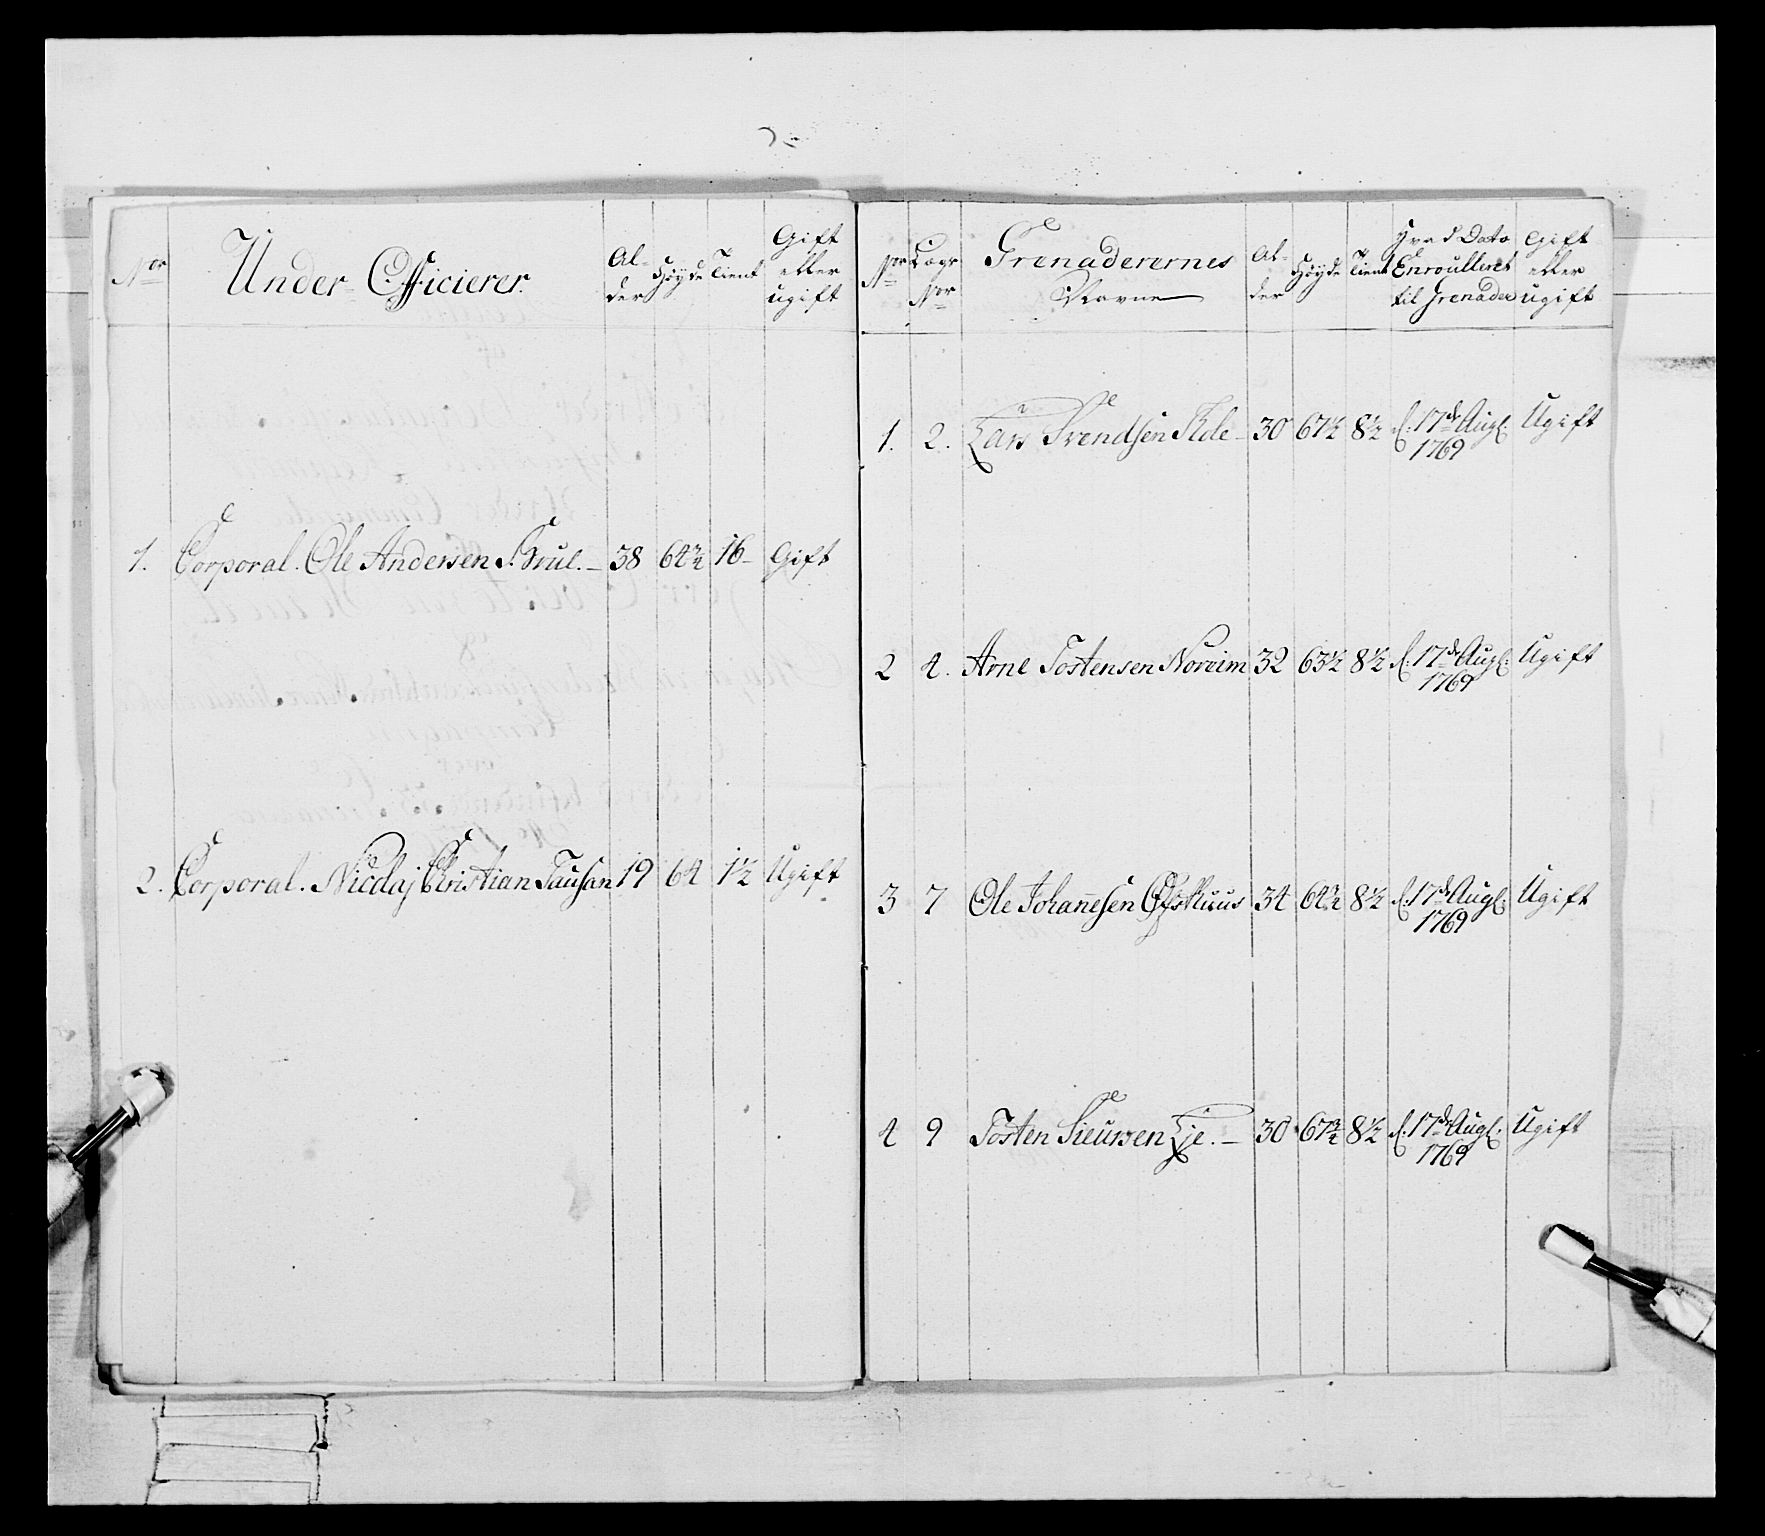 Nor Under-Officierer. Al-der Høyde Tient Gift eller ugift
1. Corporal. Ole Andersen Skrul. – 38 64¾ 16 – Gift
2. Corporal. Nicolaj Christian Tausan 19 64 1½ Ugift
Nor Lægs Nor Grenaderernes Navne Al-der Høyde Tient Hvad Dato Enroulleret til Grenader Gift eller ugift
1. 2. Lars Svendsen – 30 67½ 8½ d. 17de Aug. 1769 Ugift
2 4. Arne Tostensen Norvim 32 63½ 8½ d. 17de Aug. 1769 Ugift
3 7 Ole Johannesen 34 64¾ 8½ d. 17de Aug. 1769 Ugift
4 9 Tosten Sieursen Lje. – 30 67¾ 8½ d. 17de Aug. 1769 Ugift